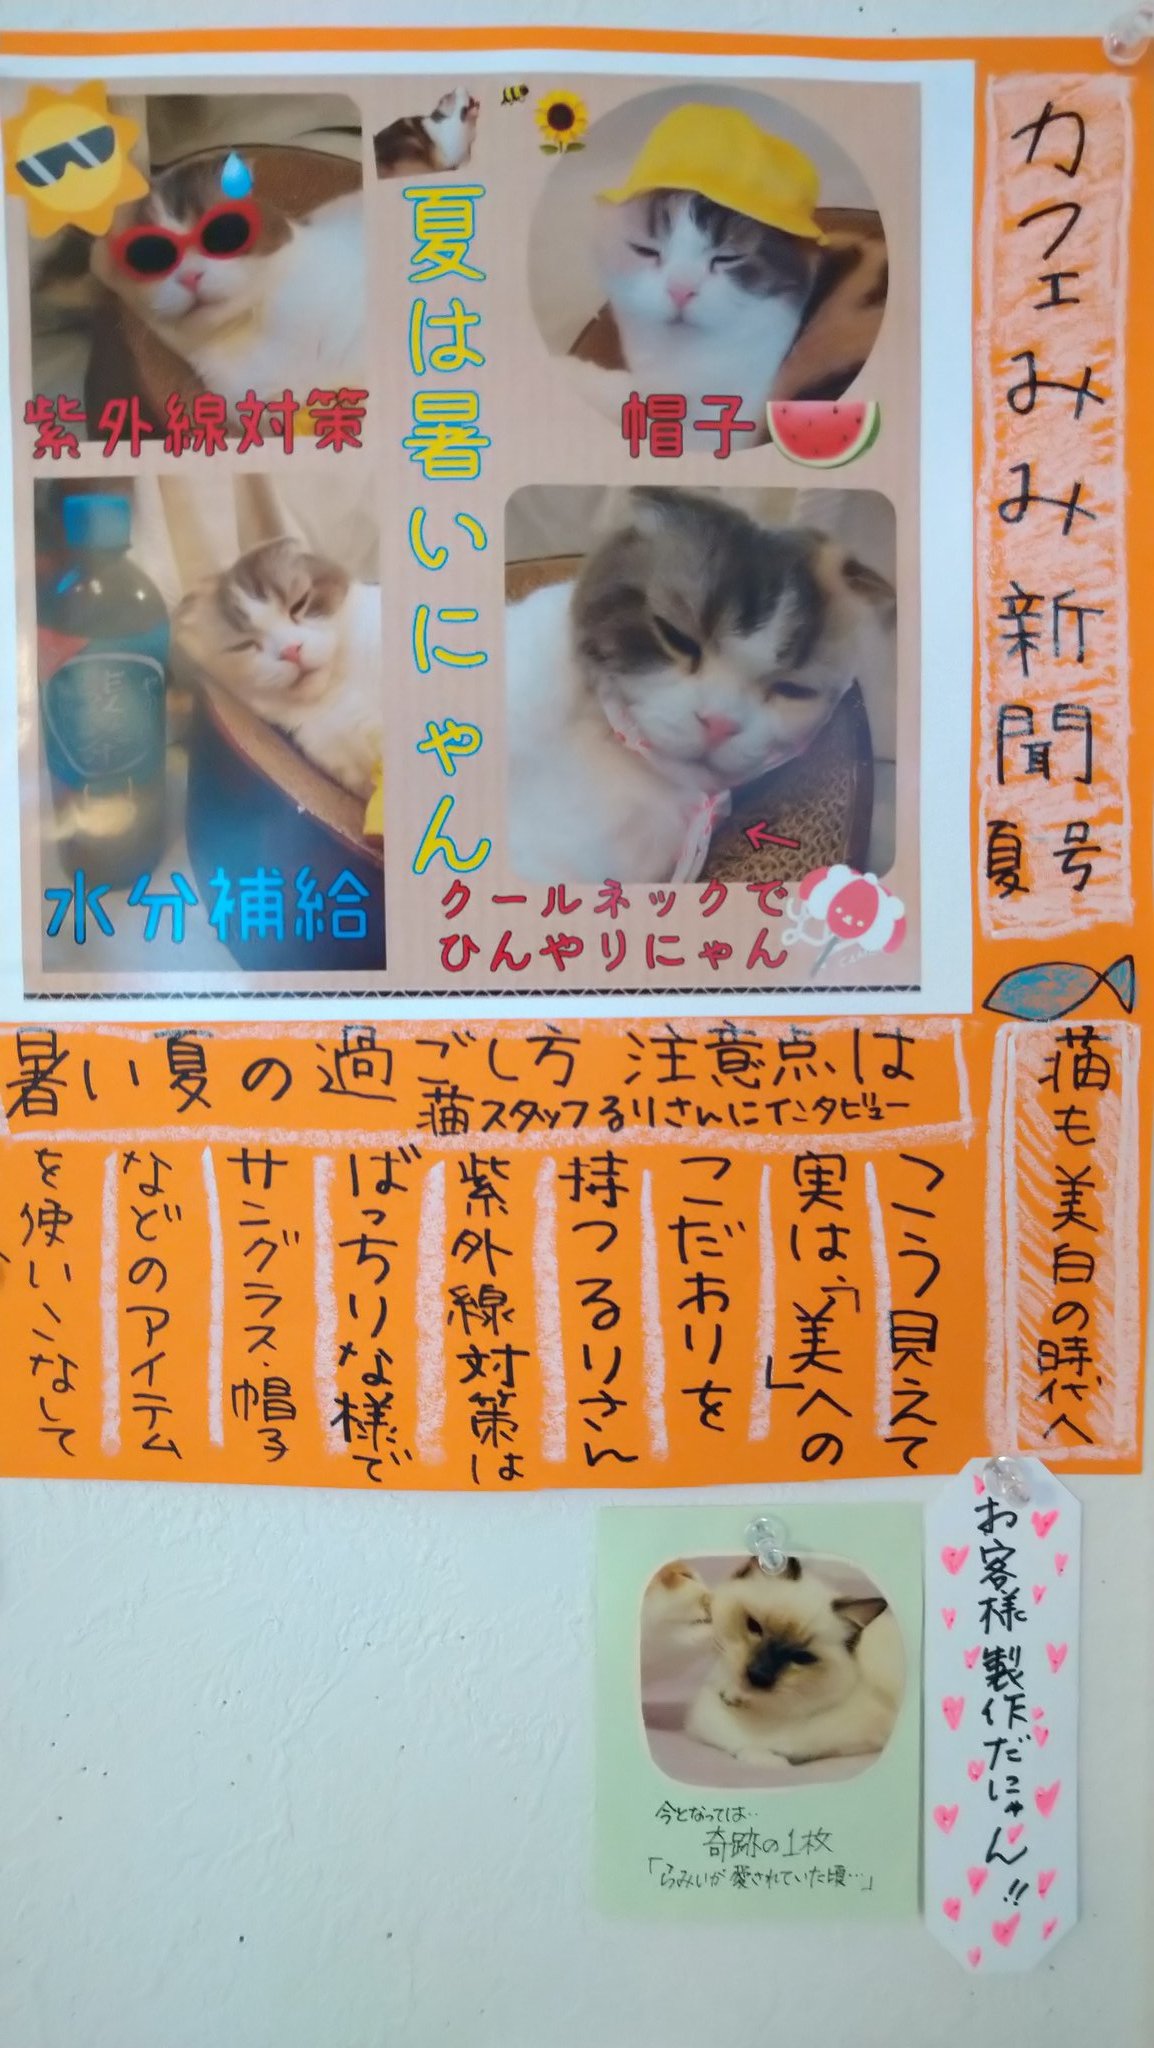 カフェみみ新聞
夏号
夏は暑いにゃん
紫外線対策
帽子
水分補給
クールネックで
ひんやりにゃん
猫も美白の時代へ
暑い夏の過ごし方 注意点は
猫スタッフるりさんにインタビュー
こう見えて
実は「美」への
こだわりを
持つるりさん
紫外線対策は
ばっちりな様で
サングラス・帽子
などのアイテム
を使いこなして
お客様製作だにゃん!!
今となっては…
奇跡の1枚
「らみいが愛されていた頃…」